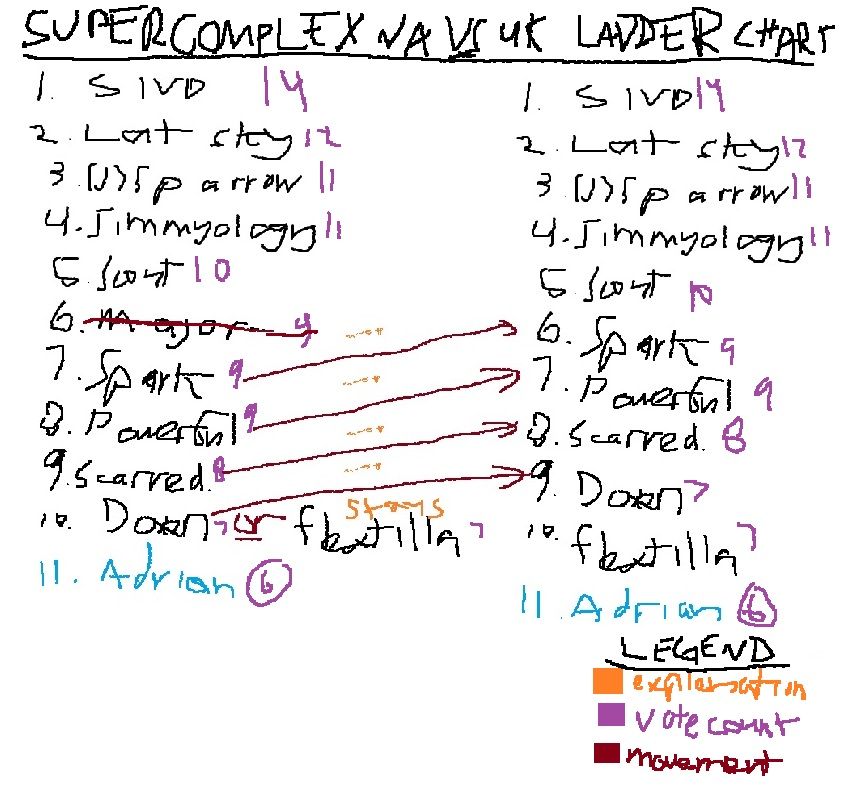 SUPERCOMPLEX NA VS UK LADDER CHART
1. SIVD 14
2. Lost sky 12
3 Sparrow 11
4. Jimmyology 11
5. 10
6. Major 9
7. Spark 9
8. Powerful 9
9. Scarred. 8
10. Down 7 or flextilla 7
stays
11. Adrian 6
1. SIVD 14
2. Lost sky 12
3 Sparrow 11
4. Jimmyology 11
5. 10
6. Spark 9
7. Powerful 9
8. Scarred. 8
9. Down 7
10. flextilla 7
11 Adrian 6
LEGEND
explanation
Vote count
movement